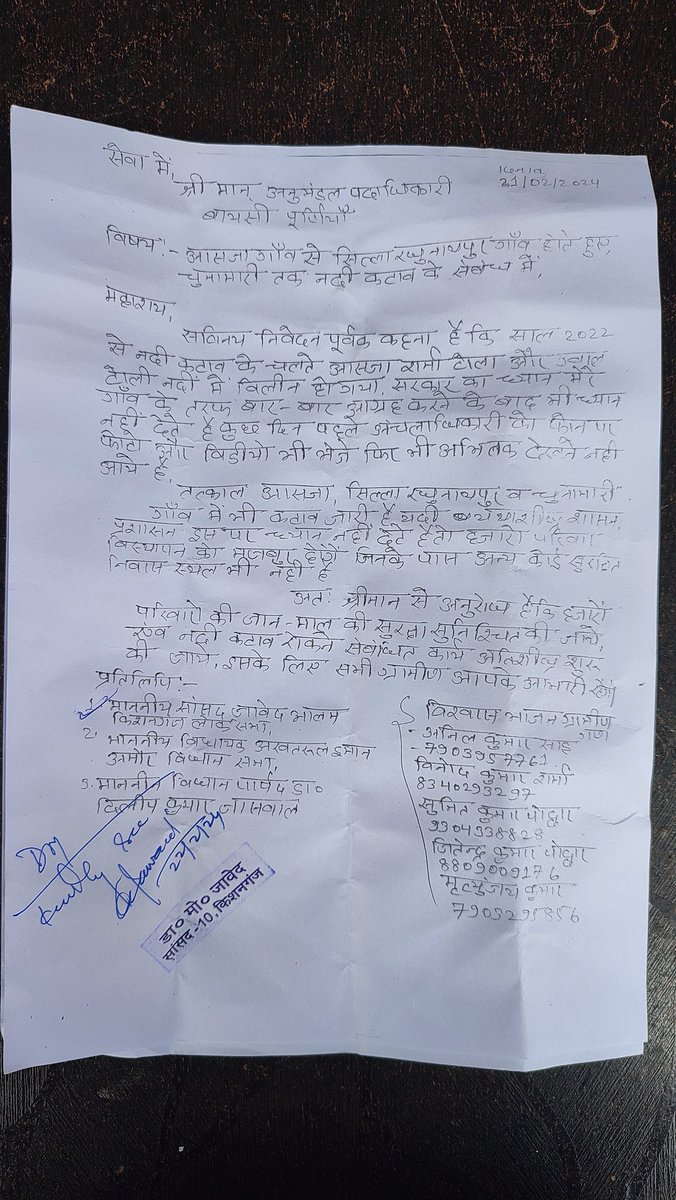 सेवा में,
दिनांक
21/02/2024
श्री मान् अनुमंडल पदाधिकारी
बायसी पूर्णियाँ
विषय:- आसजा गाँव से सिल्ला रघुनाथपुर गाँव होते हुए,
चुनामारी तक नदी कटाव के संबंध में,
महाशय,
सविनय निवेदन पूर्वक कहना है कि साल 2022
से नदी कटाव के चलते आसजा शर्मा टोला और
टोली नदी में विलीन हो गया, सरकार का ध्यान मेरे
गाँव के तरफ बार-बार आग्रह करने के बाद भी ध्यान
नहीं देते है कुछ दिन पहले अंचलाधिकारी को फोन पर
फोटो और विडीयो भी भेजे फिर भी अभितक देखने नही
आये है,
तत्काल आसजा, सिल्ला रघुनाथपुर व चुनामारी
गाँव में भी कटाव जारी है यदी यथाशीघ्र शासन,
प्रशासन इस पर ध्यान नहीं देते है तो हजारो परिवार
बिस्थापन को मजबुर होगें जिनके पास अन्य कोई सुरक्षित
निवास स्थल भी नही है
अतः श्रीमान से अनुरोध है कि हजारों
परिवारों की जान-माल की सुरक्षा सुनिश्चित की जाये,
एंव नदी कटाव रोकने संबंधित कार्य अतिशीघ्र शुरू
की जाये, इसके लिए सभी ग्रामीण आपके आभारी रहेंगे
प्रतिलिपि:-
माननीय सांसद जावेद आलम
किशनगंज लोकसभा,
2. माननीय विधायक अखतरूल इमान
अमौर विधान सभा,
3. माननीन विधान पार्षद डा०
दिलीप कुमार जासवाल
विश्वास भाजन ग्रामीण
गण
अनिल कुमार साह
-7903957761
विनोद कुमार शर्मा
8340293297
सुमित कुमार पोद्दार
9304938828
जितेन्द्र कुमार पोद्दार
8809009176
मृत्युंजय कुमार
7903295856
Kindly see
डा० मो० जावेद
सांसद-10, किशनगंज